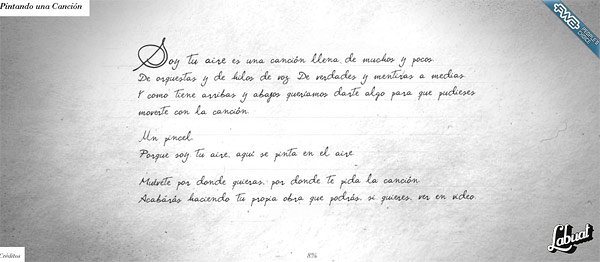 Pintando una Canción
FWA
PEOPLE'S
CHOICE
Soy tu aire es una canción llena de muchos y pocos.
De orquestas y de hilos de voz. De verdades y mentiras a medias.
Y como tiene arribas y abajos queríamos darte algo para que pudieses
moverte con la canción.
Un pincel.
Porque soy tu aire, aquí se pinta en el aire.
Muévete por donde quieras, por donde te pida la canción.
Acabarás haciendo tu propia obra que podrás, si quieres, ver en vídeo.
Labuat
Créditos